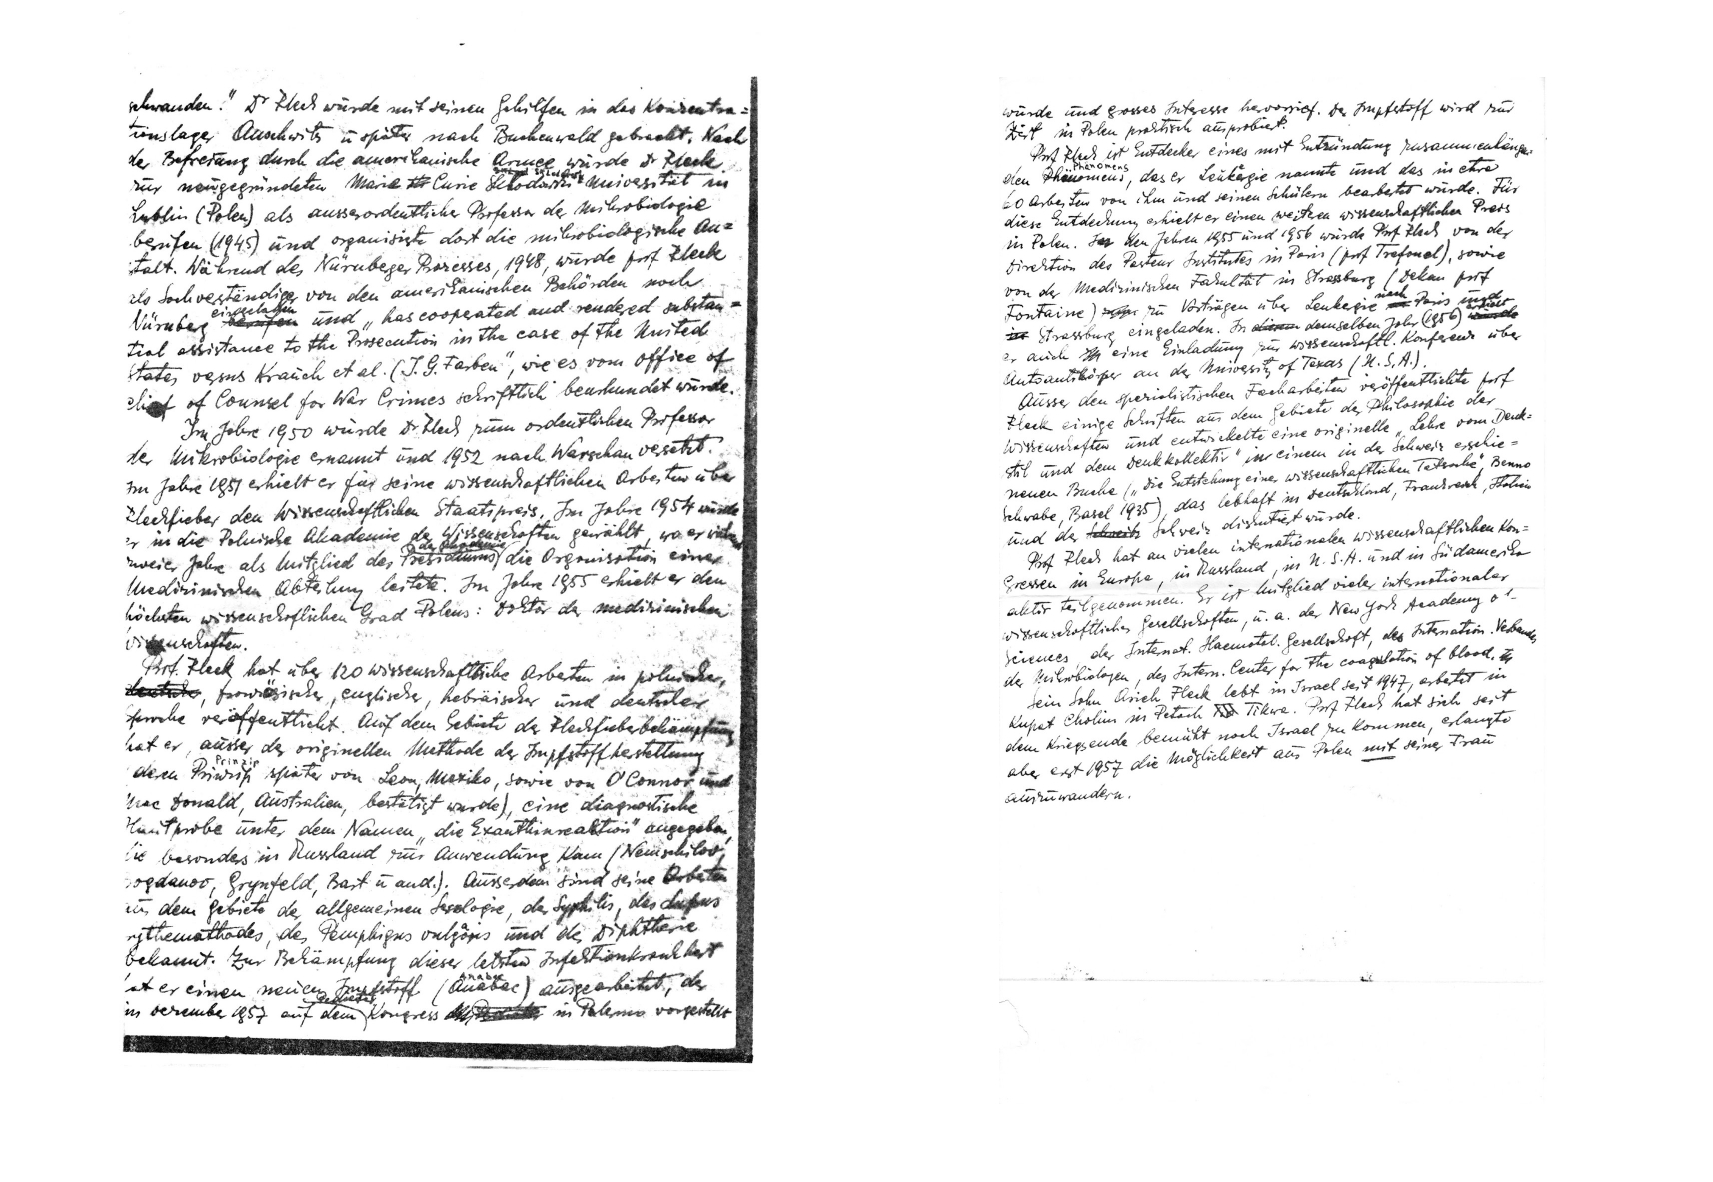 schwanden." Dr Fleck wurde mit seinen Gehilfen in das Konzentra=
tionslager Auschwitz u später nach Buchenwald gebracht. Nach
der Befreiung durch die amerikanische Armee wurde Dr Fleck
zur neugegründeten Marie Curie Skłodowski Universität in
Lublin (Polen) als ausserordentlicher Professor der Mikrobiologie
berufen (1945) und organisierte dort die mikrobiologische An=
stalt. Während des Nürnberger Prozesses, 1948, wurde prof Fleck
als Sachverständiger von den amerikanischen Behörden nach
Nürnberg eingeladen und „has cooperated and rendered substan=
tial assistance to the Prosecution in the case of the United
States versus Krauch et al. (I.G. Farben", wie es vom Office of
Chief of Counsel for War Crimes schriftlich beurkundet wurde.
Im Jahre 1950 wurde Dr Fleck zum ordentlichen Professor
der Mikrobiologie ernannt und 1952 nach Warschau versetzt.
Im Jahre 1951 erhielt er für seine wissenschaftlichen Arbeiten über
Fleckfieber den Wissenschaftlichen Staatspreis. Im Jahre 1954 wurde
er in die Polnische Akademie der Wissenschaften gewählt, wo er
zweier Jahre als Mitglied des Presidiums der Akademie die Organisation einer
Medizinischen Abteilung leitete. Im Jahre 1955 erhielt er den
höchsten wissenschaftlichen Grad Polens: Doktor der medizinischen
Wissenschaften.
Prof. Fleck hat über 120 wissenschaftliche Arbeiten in polnischer,
deutscher, französischer, englischer, hebräischer und deutscher
Sprache veröffentlicht. Auf dem Gebiete der Fleckfieberbekämpfung
hat er, ausser der originellen Methode der Impfstoffherstellung
deren Prinzip später von Leon, Mexiko, sowie von O'Connor und
Mac Donald, Australien, bestätigt wurde), eine diagnostische
Hautprobe unter dem Namen „die Exanthinreaktion" angegeben,
die besonders in Russland zur Anwendung kam (Nemschilov,
Bogdanov, Grynfeld, Bart u and.). Ausserdem sind seine Arbeiten
aus dem Gebiete der allgemeinen Serologie, der Syphilis, des Lupus
erythemathodes, des Pemphigus vulgaris und der Diphtherie
bekannt. Zur Bekämpfung dieser letzten Infektionskrankheit
hat er einen neuen Impfstoff (Anabac) ausgearbeitet, der
im Dezember 1957 auf dem Kongress in Palermo vorgestellt
wurde und grosses Interesse hervorrief. Der Impfstoff wird zur
Zeit in Polen praktisch ausprobiert.
Prof Fleck ist Entdecker eines mit Entzündung zusammenhängen=
den Phänomens, das er Leukergie nannte und das in etwa
20 Arbeiten von ihm und seinen Schülern bearbeitet wurde. Für
diese Entdeckung erhielt er einen weiteren wissenschaftlichen Preis
in Polen. In den Jahren 1955 und 1956 wurde Prof Fleck von der
Direktion des Pasteur Institutes in Paris (prof Trefouel), sowie
von der Medizinischen Fakultät in Strassburg (Dekan prof
Fontaine) zu Vorträgen über Leukergie nach Paris und
Strassburg eingeladen. In demselben Jahr (1956) erhielt
er auch eine Einladung zur wissenschaftl. Konferenz über
Antiantikörper an der University of Texas (U.S.A.).
Ausser den spezialistischen Facharbeiten veröffentlichte prof
Fleck einige Schriften aus dem Gebiete der Philosophie der
Wissenschaften und entwickelte eine originelle „Lehre vom Denk=
stil und dem Denkkollektiv" in einem in der Schweiz erschie=
nenen Buche („Die Entstehung einer wissenschaftlichen Tatsache", Benno
Schwabe, Basel 1935), das lebhaft in Deutschland, Frankreich, Italien
und der Schweiz diskutiert wurde.
Prof Fleck hat an vielen internationalen wissenschaftlichen Kon=
gressen in Europa, in Russland, in U.S.A. und in Südamerika
aktiv teilgenommen. Er ist Mitglied vieler internationaler
wissenschaftlicher Gesellschaften, u. a. der New York Academy of
Sciences, der Internat. Haematol. Gesellschaft, des Internation. Verbandes
der Mikrobiologen, des Intern. Center for the coagulation of blood.
Sein Sohn Arieh Fleck lebt in Israel seit 1947, arbeitet in
Kupat Cholim in Petach Tikwa. Prof Fleck hat sich seit
dem Kriegsende bemüht nach Israel zu kommen, erlangte
aber erst 1957 die Möglichkeit aus Polen mit seiner Frau
auszuwandern.